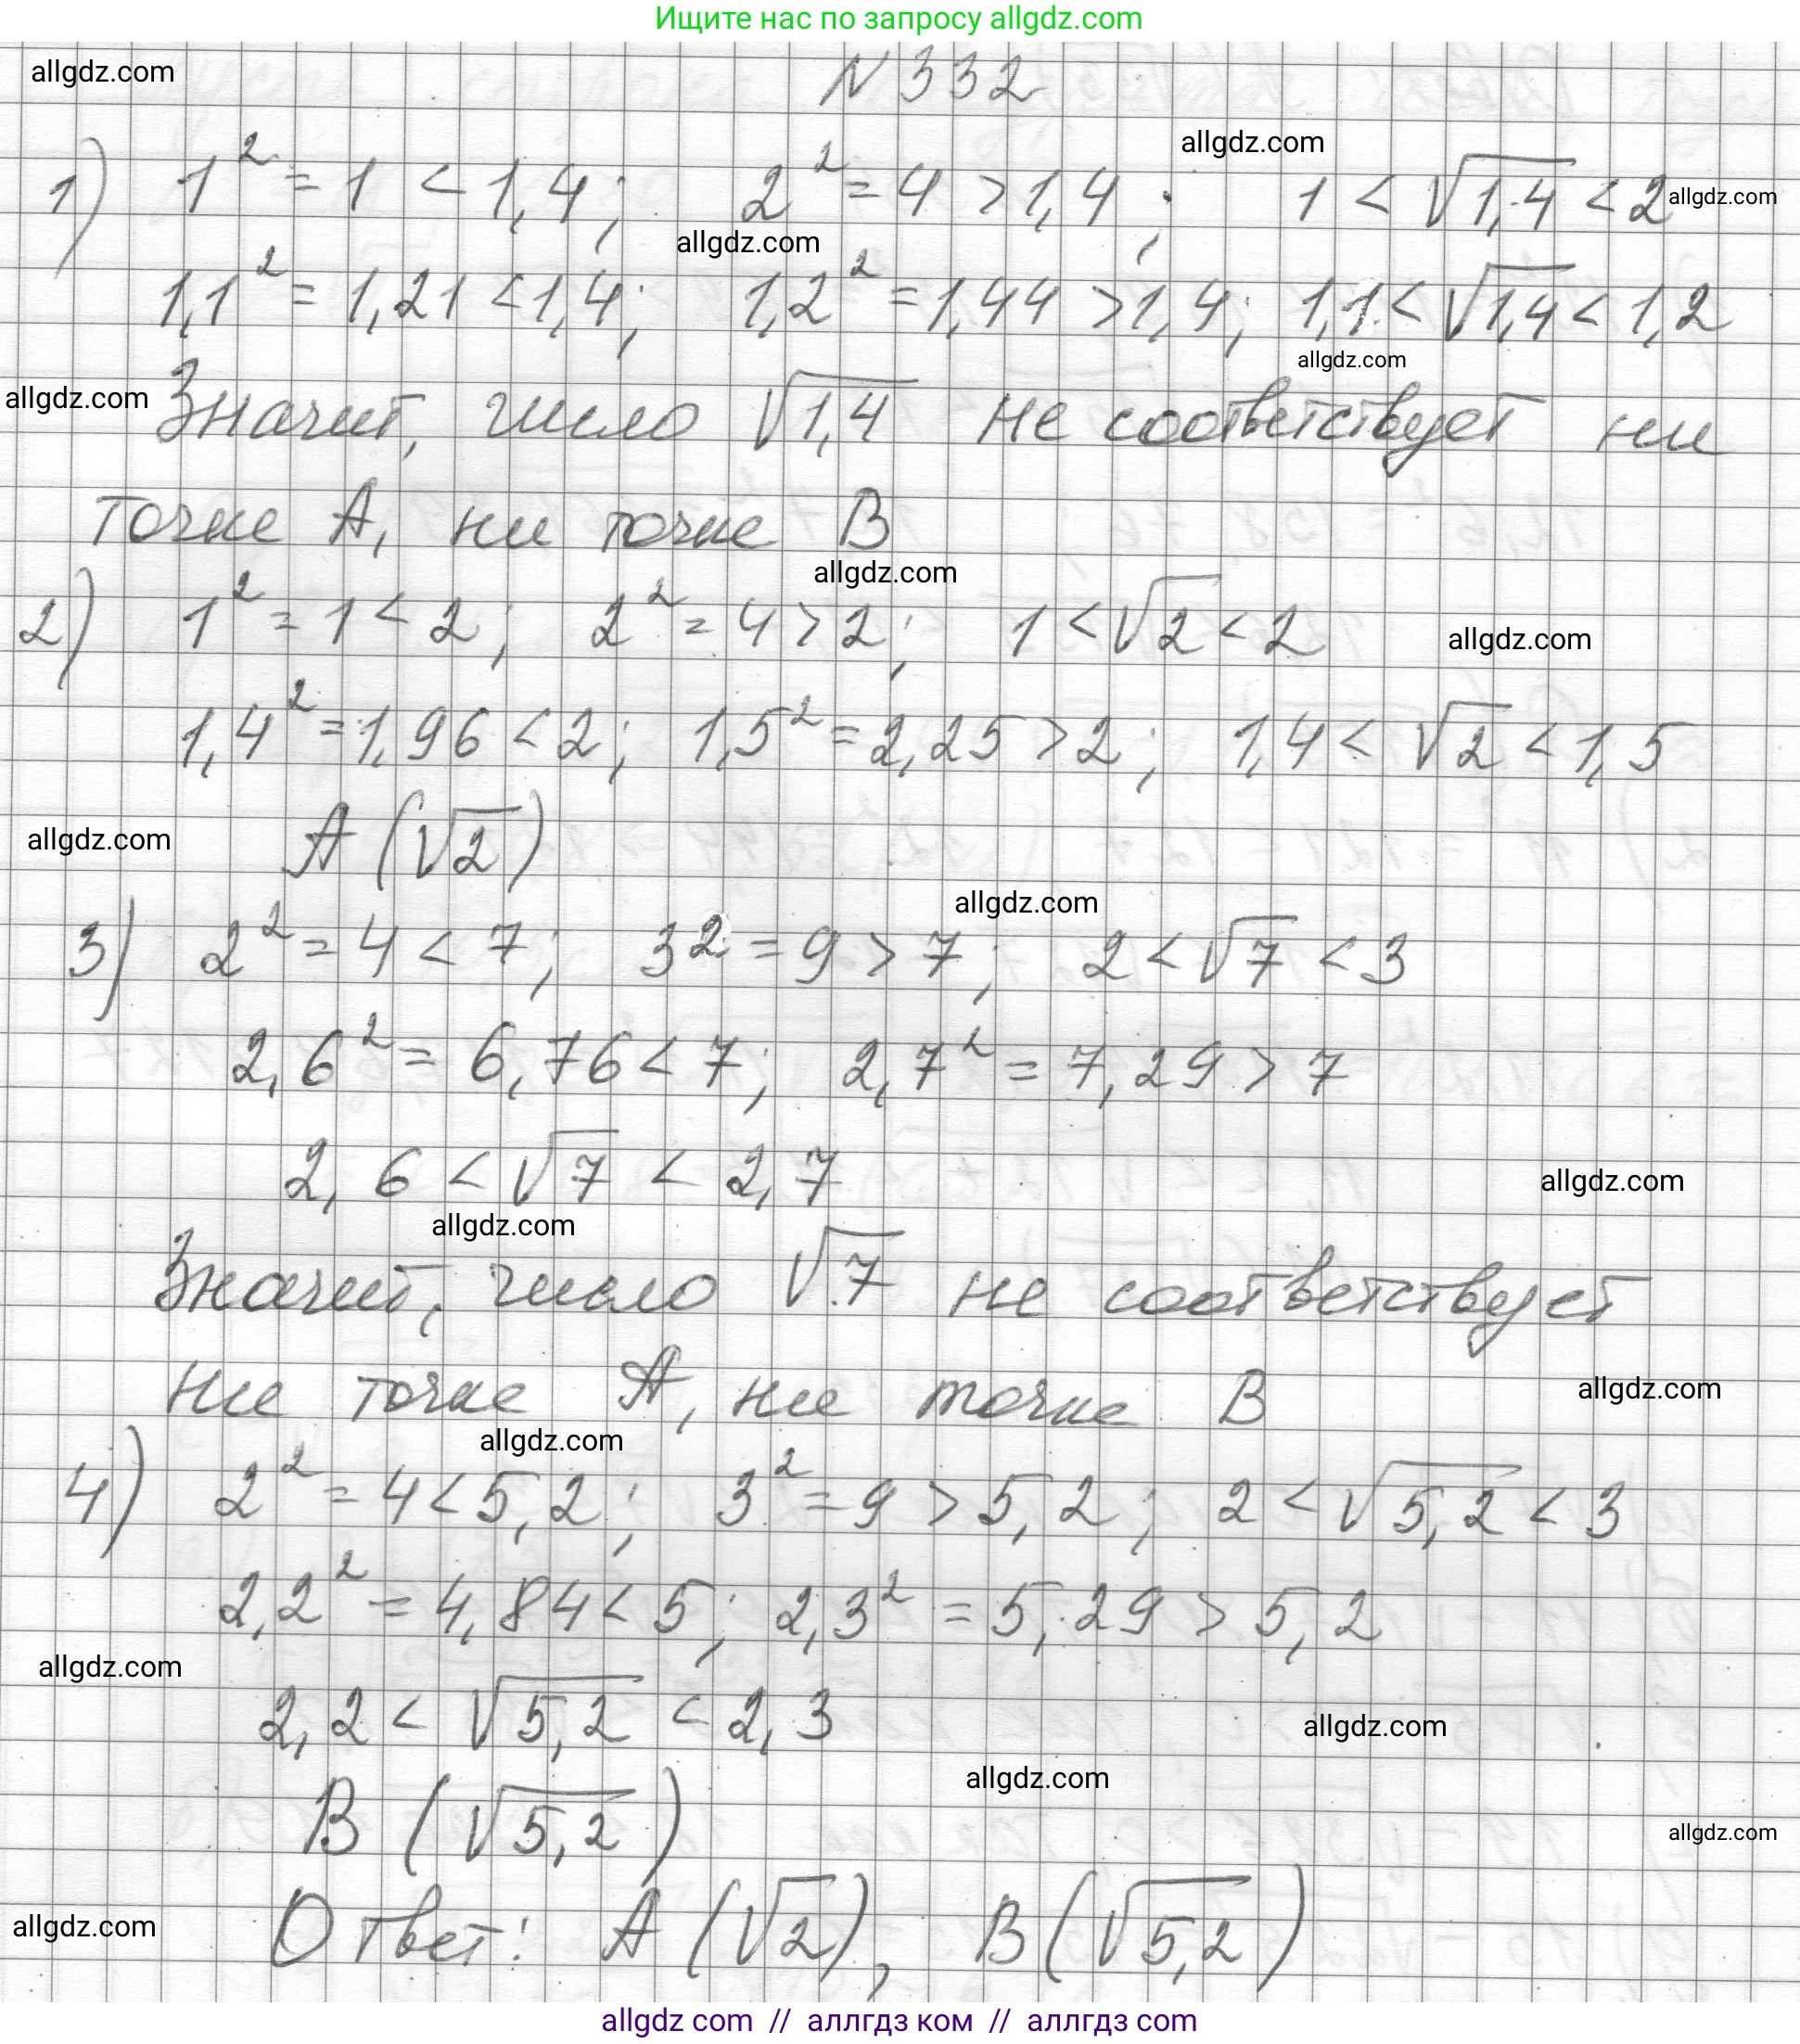 Ищите нас по запросу allgdz.com
allgdz.com
N 332
allgdz.com
1) 1² = 1 < 1,4; 2² = 4 > 1,4; 1 < √1,4 < 2 allgdz.com
allgdz.com
1,1² = 1,21 < 1,4; 1,2² = 1,44 > 1,4; 1,1 < √1,4 < 1,2
allgdz.com
allgdz.com Значит, число √1,4 не соответствует ни
точке А, ни точке В
allgdz.com
2) 1² = 1 < 2; 2² = 4 > 2; 1 < √2 < 2 allgdz.com
1,4² = 1,96 < 2; 1,5² = 2,25 > 2; 1,4 < √2 < 1,5
allgdz.com A (√2)
allgdz.com
3) 2² = 4 < 7; 3² = 9 > 7; 2 < √7 < 3
2,6² = 6,76 < 7; 2,7² = 7,29 > 7
2,6 < √7 < 2,7 allgdz.com
allgdz.com
Значит, число √7 не соответствует
ни точке А, ни точке В allgdz.com
allgdz.com
4) 2² = 4 < 5,2; 3² = 9 > 5,2; 2 < √5,2 < 3
2,2² = 4,84 < 5; 2,3² = 5,29 > 5,2
allgdz.com
2,2 < √5,2 < 2,3 allgdz.com
allgdz.com
B (√5,2) allgdz.com
allgdz.com Ответ: A (√2), B (√5,2)
allgdz com // аллгдз ком // аллгдз com